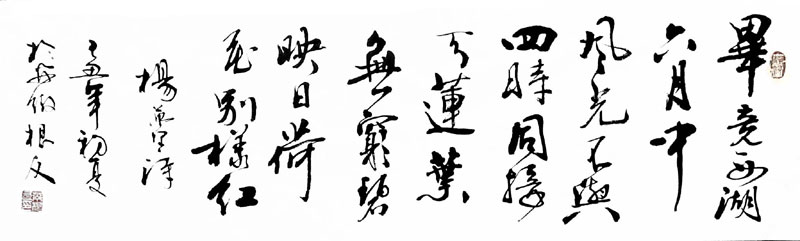 畢竟西湖
六月中
風光不與
四時同接
天蓮葉
無窮碧
映日荷
花別樣紅
楊萬里詩
年初夏
根文